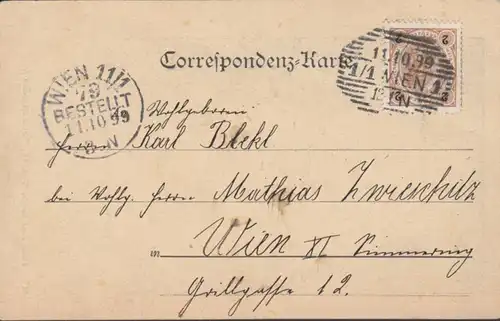 Correspondenz-Karte
2 2
11.10.99
1/1 WIEN 1
N
WIEN 11/1
79
BESTELLT
11.10.99
N
Wohlgeboren
Herrn Karl Blekl
bei Wohlg. Herrn Mathias Zwieschitz
in Wien XI Simmering
Grillgasse 12.